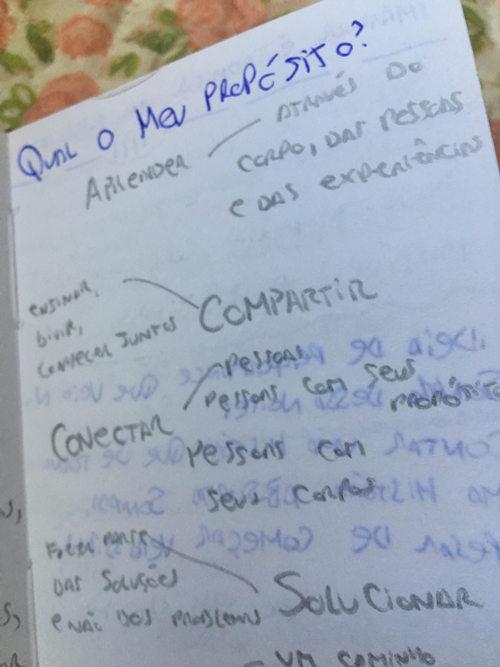 QUAL O MEU PROPÓSITO?
APRENDER
ATRAVÉS DO
CORPO, DAS PESSOAS
E DAS EXPERIÊNCIAS
ENSINAR,
CONHECER JUNTOS
COMPARTIR
PESSOAS
PESSOAS COM SEUS
PROPÓSITO
CONECTAR
PESSOAS COM
SEUS CORPOS
FAZER PARTE
DAS SOLUÇÕES
E NÃO DOS PROBLEMAS
SOLUCIONAR
UM CAMINHO